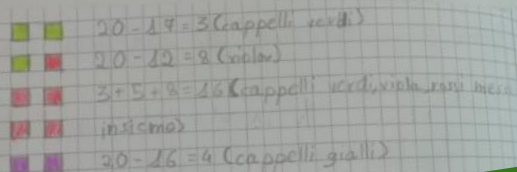 20-17=3 (cappelli verdi)
20-12=8 (viola)
3+5+8=16 (cappelli verdi, viola, rossi messi
insieme)
20-16=4 (cappelli gialli)